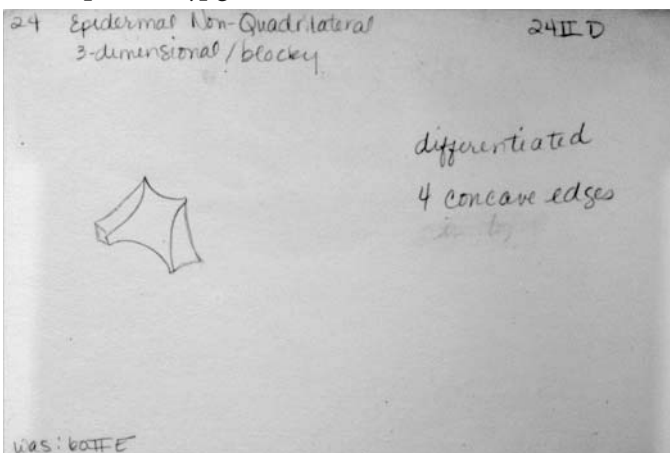 24 Epidermal Non-Quadrilateral
3-dimensional/blocky
24II D
differentiated
4 concave edges
was: 60IIE